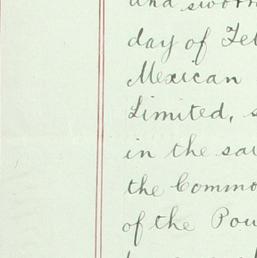 and sworn
day of Feb
Mexican
Limited, s
in the sai
the Commo
of the Pow